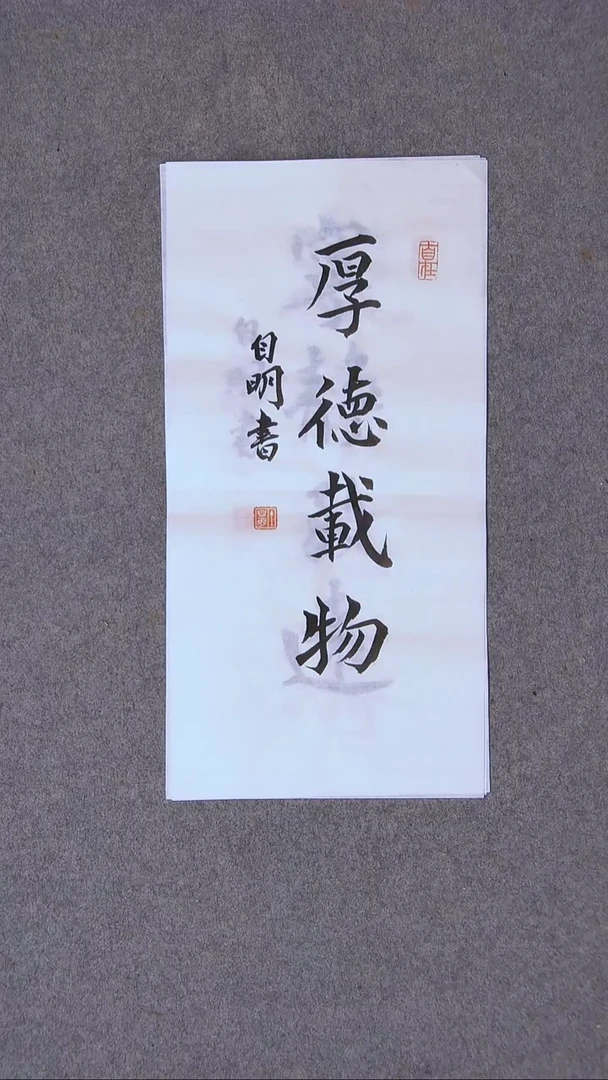 厚德載物
自明書